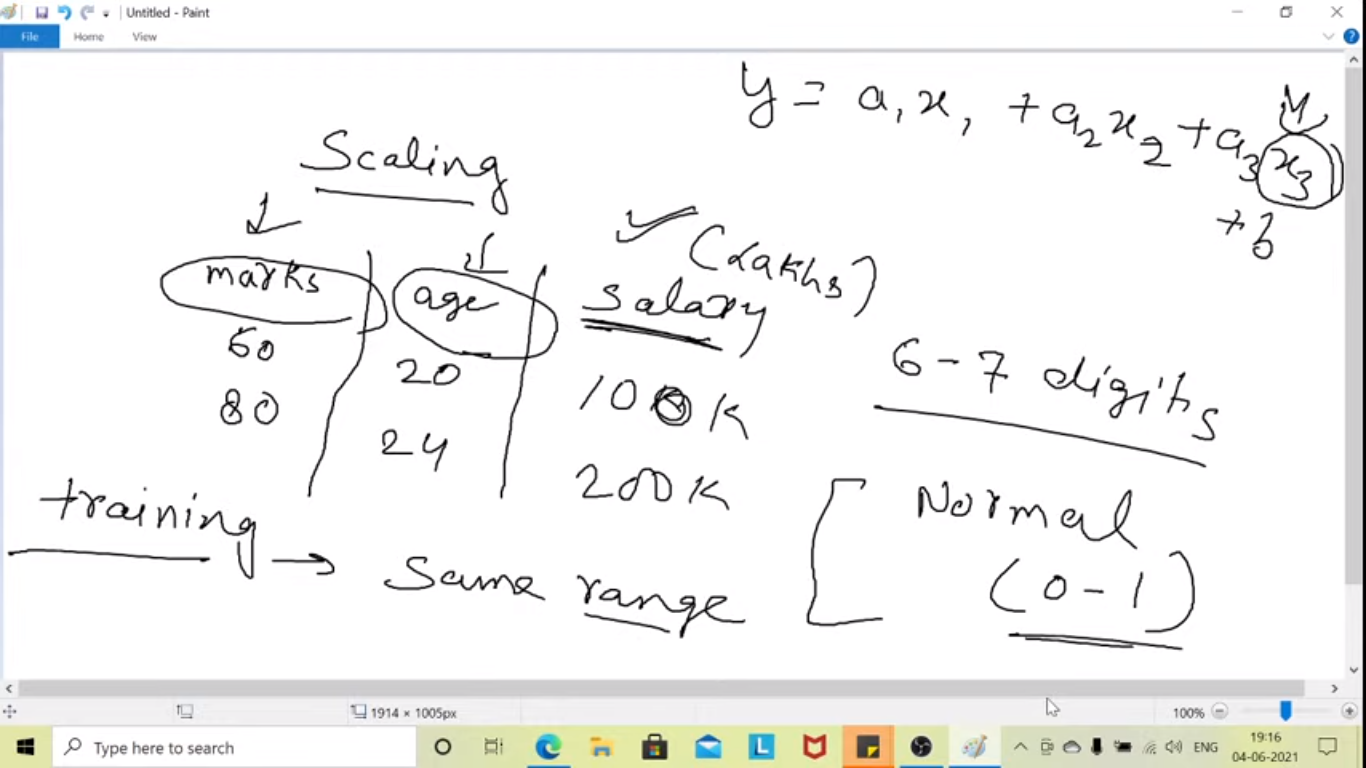 Untitled - Paint
File Home View
y = a1x1 + a2x2 + a3x3
+ b
Scaling
(Lakhs)
marks age salary
60 20 100K
80 24 200K
6-7 digits
training → same range
Normal
(0-1)
1914 × 1005px 100%
Type here to search
ENG
19:16
04-06-2021